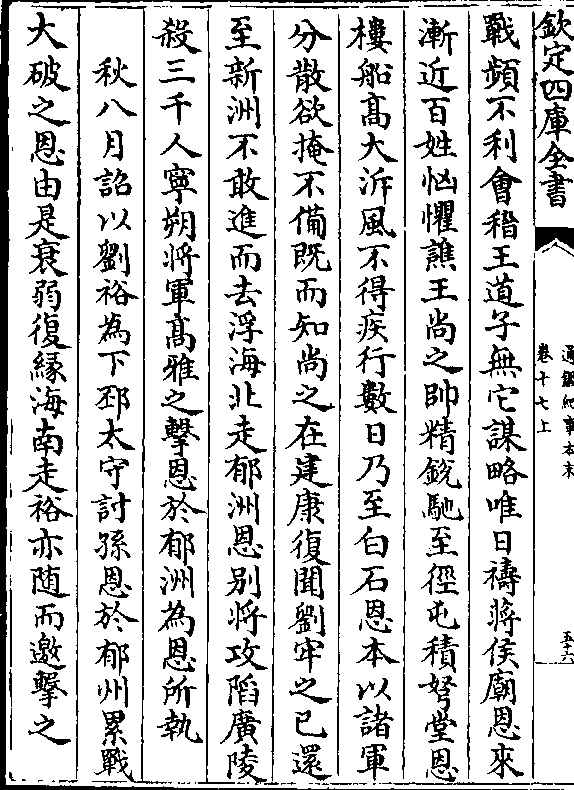 欽定四庫全書
通鑑紀事本末
卷十七上
五十六
戰頻不利會稽王道子無它謀略唯日禱蔣侯廟恩來
漸近百姓恟懼譙王尚之帥精銳馳至徑屯積弩堂恩
樓船高大泝風不得疾行數日乃至白石恩本以諸軍
分散欲掩不備既而知尚之在建康復聞劉牢之已還
至新洲不敢進而去浮海北走郁洲恩别將攻陷廣陵
殺三千人寧朔將軍高雅之擊恩於郁洲為恩所執
秋八月詔以劉裕為下邳太守討孫恩於郁州累戰
大破之恩由是衰弱復緣海南走裕亦随而邀擊之